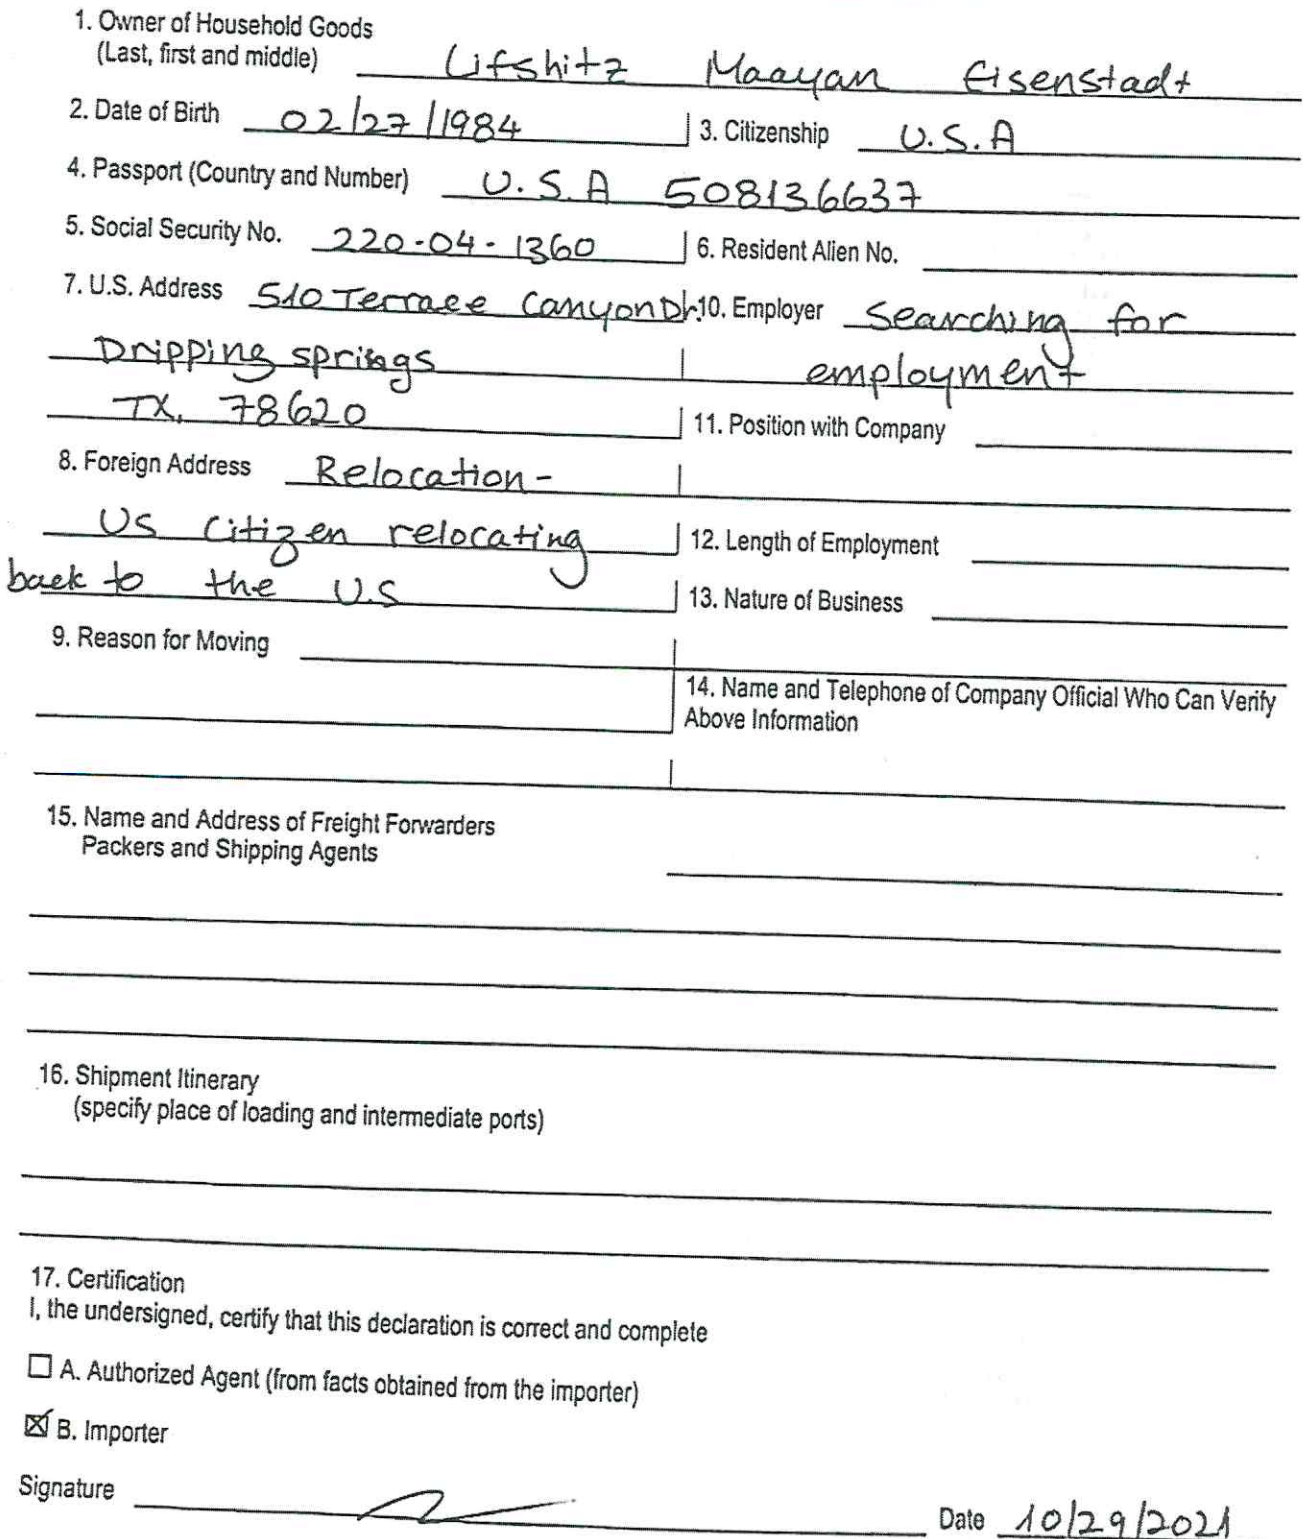 1. Owner of Household Goods
(Last, first and middle) Lifshitz Maayan Eisenstadt
2. Date of Birth 02/27/1984 3. Citizenship U.S.A
4. Passport (Country and Number) U.S.A 508136637
5. Social Security No. 220-04-1360 6. Resident Alien No.
7. U.S. Address 510 Terrace Canyon Dr. 10. Employer Searching for
Dripping springs employment
TX. 78620 11. Position with Company
8. Foreign Address Relocation-
US Citizen relocating 12. Length of Employment
back to the U.S 13. Nature of Business
9. Reason for Moving
14. Name and Telephone of Company Official Who Can Verify
Above Information
15. Name and Address of Freight Forwarders
Packers and Shipping Agents
16. Shipment Itinerary
(specify place of loading and intermediate ports)
17. Certification
I, the undersigned, certify that this declaration is correct and complete
☐ A. Authorized Agent (from facts obtained from the importer)
☒ B. Importer
Signature Date 10/29/2021